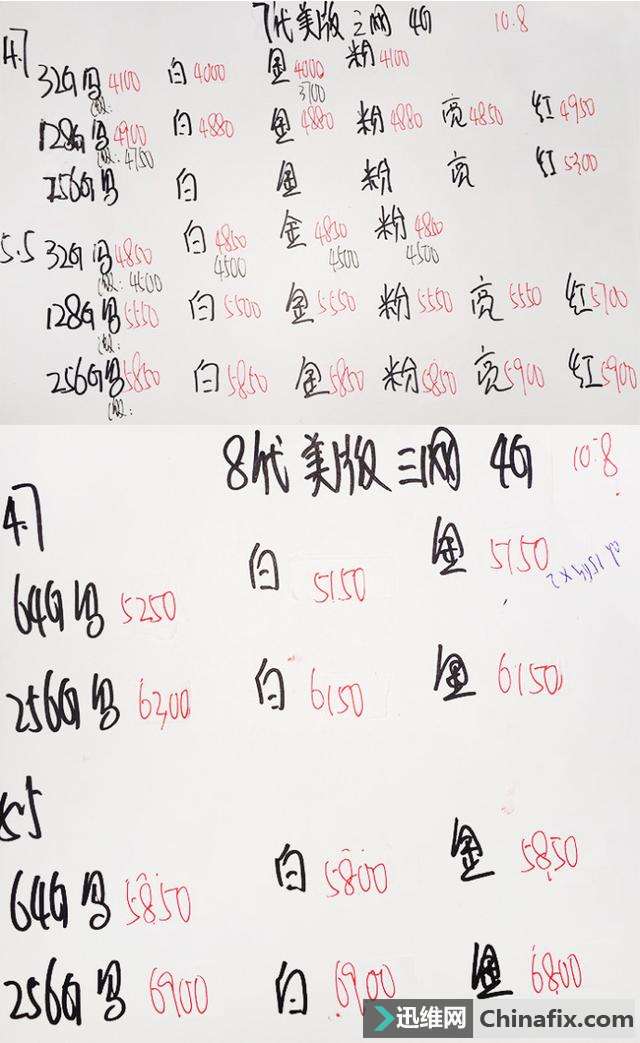 7代美版三网 4G 10.8
4.7
32G 黑 4100 白 4000 金 4000 粉 4100
3700
128G 黑 4900 白 4880 金 4880 粉 4880 亮 4850 红 4950
4750
256G 黑 白 金 粉 亮 红 5300
5.5
32G 黑 4850 白 4850 金 4850 粉 4850
4600 4500 4500 4500
128G 黑 5550 白 5500 金 5550 粉 5550 亮 5550 红 5700
256G 黑 5850 白 5850 金 5850 粉 5850 亮 5900 红 5900
8代 美版 三网 4G 10.8
4.7
64G 黑 5250 白 5150 金 5150
256G 黑 6200 白 6150 金 6150
5.5
64G 黑 5850 白 5800 金 5850
256G 黑 6900 白 6900 金 6800
迅维网 Chinafix.com